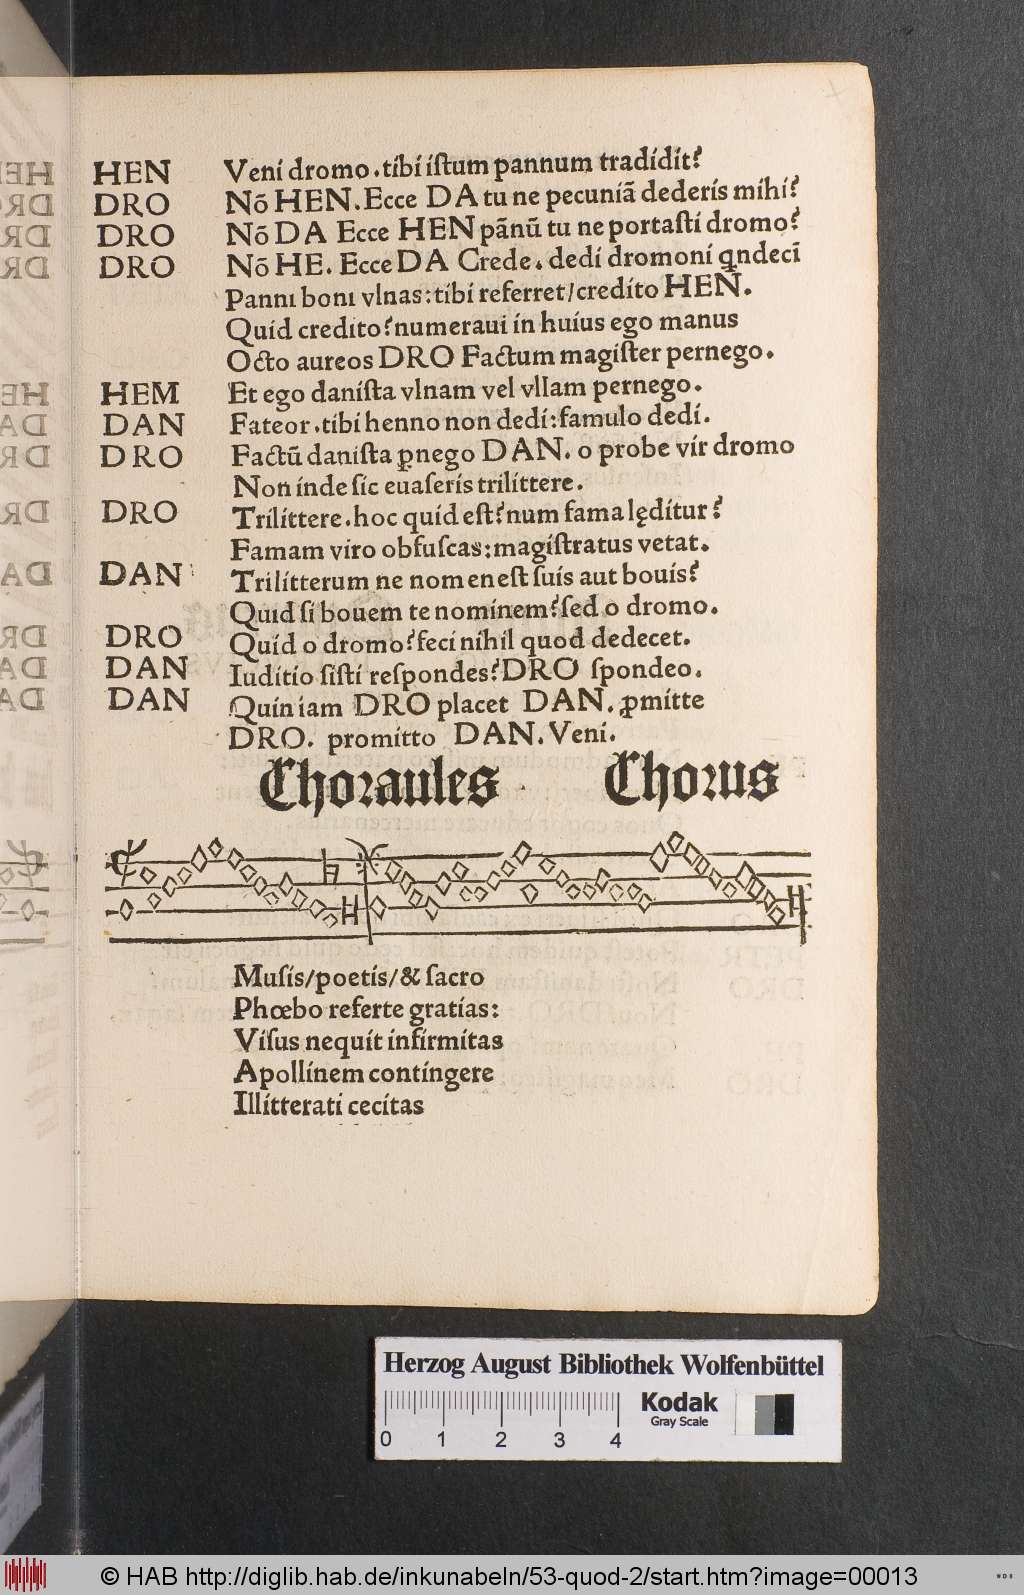 HEN Veni dromo.tibi iſtum pannum tradidit?
DRO Nõ HEN.Ecce DA tu ne pecuniã dederis mihi?
DRO Nõ DA Ecce HEN pãnũ tu ne portaſti dromo?
DRO Nõ HE. Ecce DA Crede. dedi dromoni qndecĩ
Panni boni vlnas:tibi referret/credito HEN.
Quid credito?numeraui in huius ego manus
Octo aureos DRO Factum magiſter pernego.
HEM Et ego daniſta vlnam vel vllam pernego.
DAN Fateor.tibi henno non dedi:famulo dedi.
DRO Factũ daniſta ꝑnego DAN. o probe vir dromo
Non inde ſic euaſeris trilittere.
DRO Trilittere.hoc quid eſt?num fama lęditur?
Famam viro obfuſcas:magiſtratus vetat.
DAN Trilitterum ne nomen eſt ſuis aut bouis?
Quid ſi bouem te nominem?ſed o dromo.
DRO Quid o dromo?feci nihil quod dedecet.
DAN Iuditio ſiſti reſpondes?DRO ſpondeo.
DAN Quin iam DRO placet DAN. ꝓmitte
DRO. promitto DAN.Veni.
Choraules Chorus
Muſis/poetis/& ſacro
Phœbo referte gratias:
Viſus nequit infirmitas
Apollinem contingere
Illitterati cecitas
Herzog August Bibliothek Wolfenbüttel
Kodak
Gray Scale
0 1 2 3 4
© HAB http://diglib.hab.de/inkunabeln/53-quod-2/start.htm?image=00013